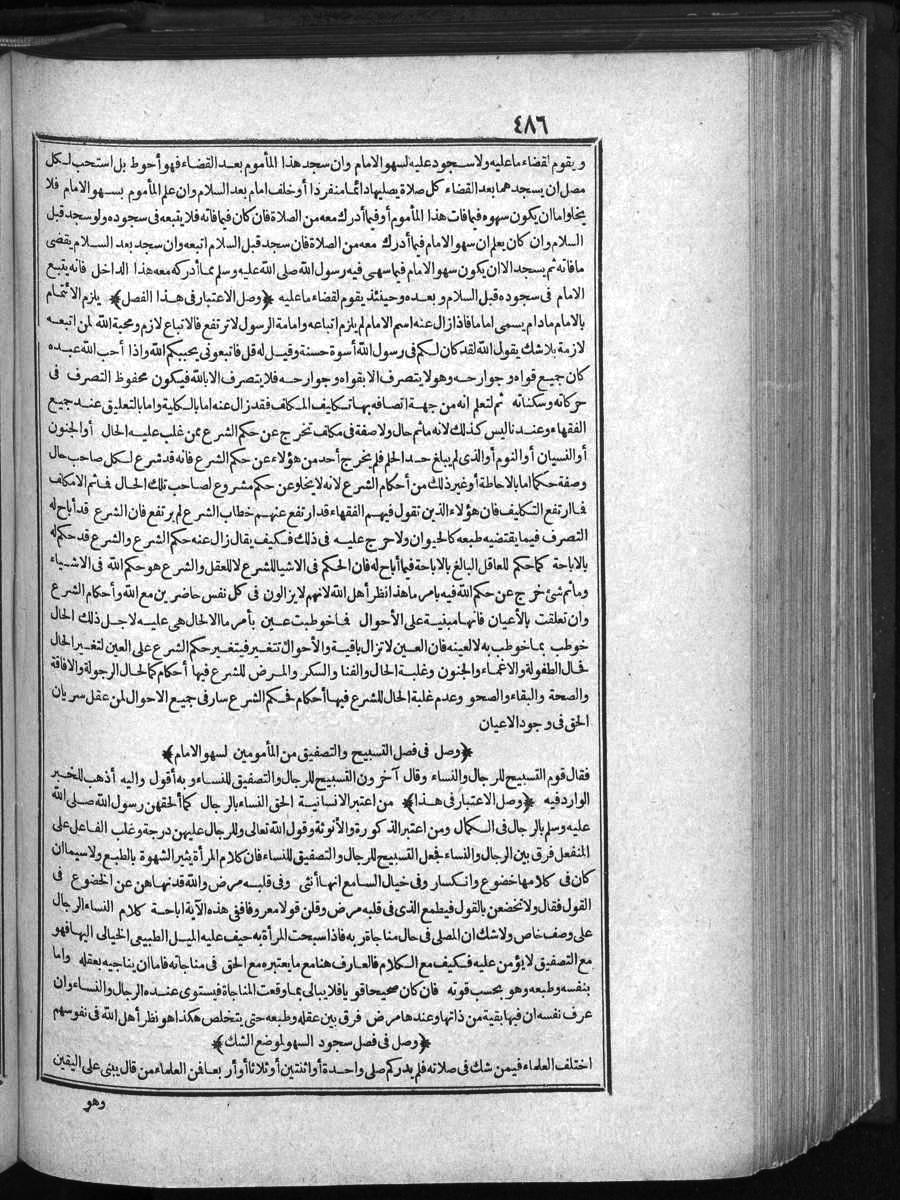 ٤٨٦
ويقوم لقضاء ما عليه ولا سجود عليه لسهو الامام وان سجد هذا المأموم بعد القضاء فهو أحوط بل استحب لكل
مصل ان يسجدهما بعد القضاء كل صلاة يصليها دائما منفردا أو خلف امام بعد السلام وان علم المأموم بسهو الامام فلا
يخلو اما ان يكون سهوه فيما فات هذا المأموم أو فيما أدرك معه من الصلاة فان كان فيما فاته فلا يتبعه فى سجوده ولو سجد قبل
السلام وان كان يعلم ان سهو الامام فيما أدرك معه من الصلاة فان سجد قبل السلام اتبعه وان سجد بعد السلام يقضى
ما فاته ثم يسجد الا ان يكون سهو الامام فيما سهى فيه رسول الله صلى الله عليه وسلم مما أدركه معه هذا الداخل فانه يتبع
الامام فى سجوده قبل السلام وبعده وحينئذ يقوم لقضاء ما عليه ﴿وصل الاعتبار فى هذا الفصل﴾ يلزم الائتمام
بالامام ما دام يسمى اماما فاذا زال عنه اسم الامام لم يلزم اتباعه وامامة الرسول لا ترتفع فالاتباع لازم ومحبة الله لمن اتبعه
لازمة بلا شك يقول الله لقد كان لكم فى رسول الله أسوة حسنة وقيل له قل فاتبعونى يحببكم الله واذا أحب الله عبده
كان جميع قواه وجوارحه وهو لا يتصرف الا بقواه وجوارحه فلا يتصرف الا بالله فيكون محفوظ التصرف فى
حركاته وسكناته ثم لتعلم انه من جهة اتصافه بها تكاليف المكلف فقد زال عنه اما بالكلية واما بالتعليق عند جميع
الفقهاء وعندنا ليس كذلك لانه ما ثم حال ولا صفة فى مكلف تخرج عن حكم الشرع ممن غلب عليه الحال أو الجنون
أو النسيان أو النوم أو الذى لم يبلغ حد الحلم فلم يخرج أحد من هؤلاء عن حكم الشرع فانه قد شرع لكل صاحب حال
وصفة حكما اما بالاحاطة أو غير ذلك من أحكام الشرع لانه لا يخلو عن حكم مشروع لصاحب تلك الحال فما ثم الا مكلف
فما ارتفع التكليف فان هؤلاء الذين تقول فيهم الفقهاء قد ارتفع عنهم خطاب الشرع لم يرتفع فان الشرع قد أباح له
التصرف فيما يقتضيه طبعه كالحيوان ولا حرج عليه فى ذلك فكيف يقال زال عنه حكم الشرع والشرع قد حكم له
بالاباحة كما حكم للعاقل البالغ بالاباحة فيما أباح له فان الحكم فى الاشياء للشرع لا للعقل والشرع هو حكم الله فى الاشياء
وما ثم شئ خرج عن حكم الله فيه بامر ما هذا نظر أهل الله لانهم لا يزالون فى كل نفس حاضرين مع الله وأحكام الشرع
وان تعلقت بالأعيان فانها مبنية على الأحوال فما خوطبت عين بأمر ما الا لحال هى عليه لاجل ذلك الحال
خوطب بما خوطب به لا لعينه فان العين لا تزال باقية والأحوال تتغير فيتغير حكم الشرع على العين لتغير الحال
فحال الطفولة والاغماء والجنون وغلبة الحال والفنا والسكر والمرض للشرع فيها أحكام كما لحال الرجولة والافاقة
والصحة والبقاء والصحو وعدم غلبة الحال للشرع فيها أحكام فحكم الشرع سار فى جميع الاحوال لمن عقل سريان
الحق فى وجود الاعيان
﴿وصل فى فصل التسبيح والتصفيق من المأمومين لسهو الامام﴾
فقال قوم التسبيح للرجال والنساء وقال آخرون التسبيح للرجال والتصفيق للنساء وبه أقول واليه أذهب للخبر
الوارد فيه ﴿وصل الاعتبار فى هذا﴾ من اعتبر الانسانية الحق النساء بالرجال كما ألحقهن رسول الله صلى الله
عليه وسلم بالرجال فى الكمال ومن اعتبر الذكورة والأنوثة وقول الله تعالى وللرجال عليهن درجة وغلب الفاعل على
المنفعل فرق بين الرجال والنساء فجعل التسبيح للرجال والتصفيق للنساء فان كلام المرأة يثير الشهوة بالطبع ولا سيما ان
كان فى كلامها خضوع وانكسار وفى خيال السامع انها أنثى وفى قلبه مرض والله قد نهاهن عن الخضوع فى
القول فقال ولا تخضعن بالقول فيطمع الذى فى قلبه مرض وقلن قولا معروفا ففى هذه الآية اباحة كلام النساء الرجال
على وصف خاص ولا شك ان المصلى فى حال مناجاة ربه فاذا سبحت المرأة به حيف عليه الميل الطبيعى الخيالى اليها فهو
مع التصفيق لا يؤمن عليه فكيف مع الكلام فالعارف هنا مع ما يعتبره مع الحق فى مناجاته فاما ان يناجيه بعقله واما
بنفسه وطبعه وهو بحسب قوته فان كان صحيحا قويا فلا يبالى بما وقعت المناجاة فيستوى عنده الرجال والنساء وان
عرف نفسه ان فيها بقية من ذاتها وعندها مرض فرق بين عقله وطبعه حتى يتخلص هكذا هو نظر أهل الله فى نفوسهم
﴿وصل فى فصل سجود السهو لموضع الشك﴾
اختلف العلماء فيمن شك فى صلاته فلم يدر كم صلى واحدة أو اثنتين أو ثلاثا أو أربعا فمن العلماء من قال يبنى على اليقين
وهو